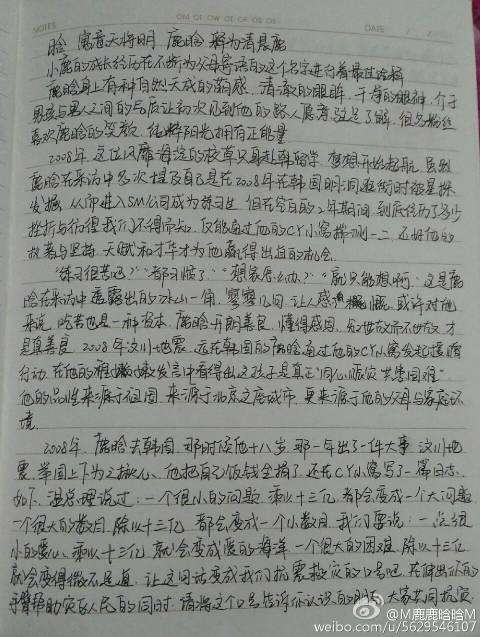 NOTES
DATE
晗 寓意天将明 鹿晗 解为清晨鹿
小鹿的成长经历在不断为父母寄语的这个名字进行着最佳诠释
鹿晗身上有种自然天成的萌感 清澈的眼眸 干净的眼神 介于
男孩与男人之间的
喜欢鹿晗的笑容 纯粹阳光拥有正能量
2008年 这位风靡海淀的校草只身赴韩留学 梦想开始起航 虽然
鹿晗在采访中多次提及自己是在2008年在韩国明洞逛街时被星探
发掘 从而进入SM公司成为练习生 但在空白的2年期间 到底经历了多少
挫折与彷徨 我们不得而知 仅能通过他的CY小窝探测一二 还好他的
执着与坚持 天赋和才华才为他赢得出道的机会
“练习很苦吧?”“都习惯了”“想家怎么办?”“就只能想啊”这是鹿
晗在采访中透露出的冰山一角 寥寥几句 让人感慨 或许对他
来说 吃苦也是一种资本 鹿晗开朗善良 懂得感恩 知世故而不世故 才
是真善良 2008年汶川地震 远在韩国的鹿晗通过他的CY小窝发起援赠
行动 在他的发言中看得出这孩子是真正“同心赈灾 共患国难”
他的品性来源于祖国 来源于北京这座城市 更来源于他的父母与家庭环
境
2008年 鹿晗去韩国 那时候他十八岁 那一年出了一件大事 汶川地
震 举国上下为之揪心 他把自己饭钱全捐了 还在CY小窝写了一篇日志
如下 温总理说过:一个很小的问题 乘以十三亿 都会变成一个大问题
一个很大的数目 除以十三亿 都会变成一个小数目 我们要说:一点很
小的爱心 乘以十三亿 就会变成爱的海洋 一个很大的困难 除以十三亿
就会变得微不足道 让这句话变成我们抗震救灾的口号吧 在伸出你的
手帮助灾区人民的同时 请将这个口号告诉你认识的朋友 大家共同抗灾
@M鹿鹿晗晗M
weibo.com/u/5629546107